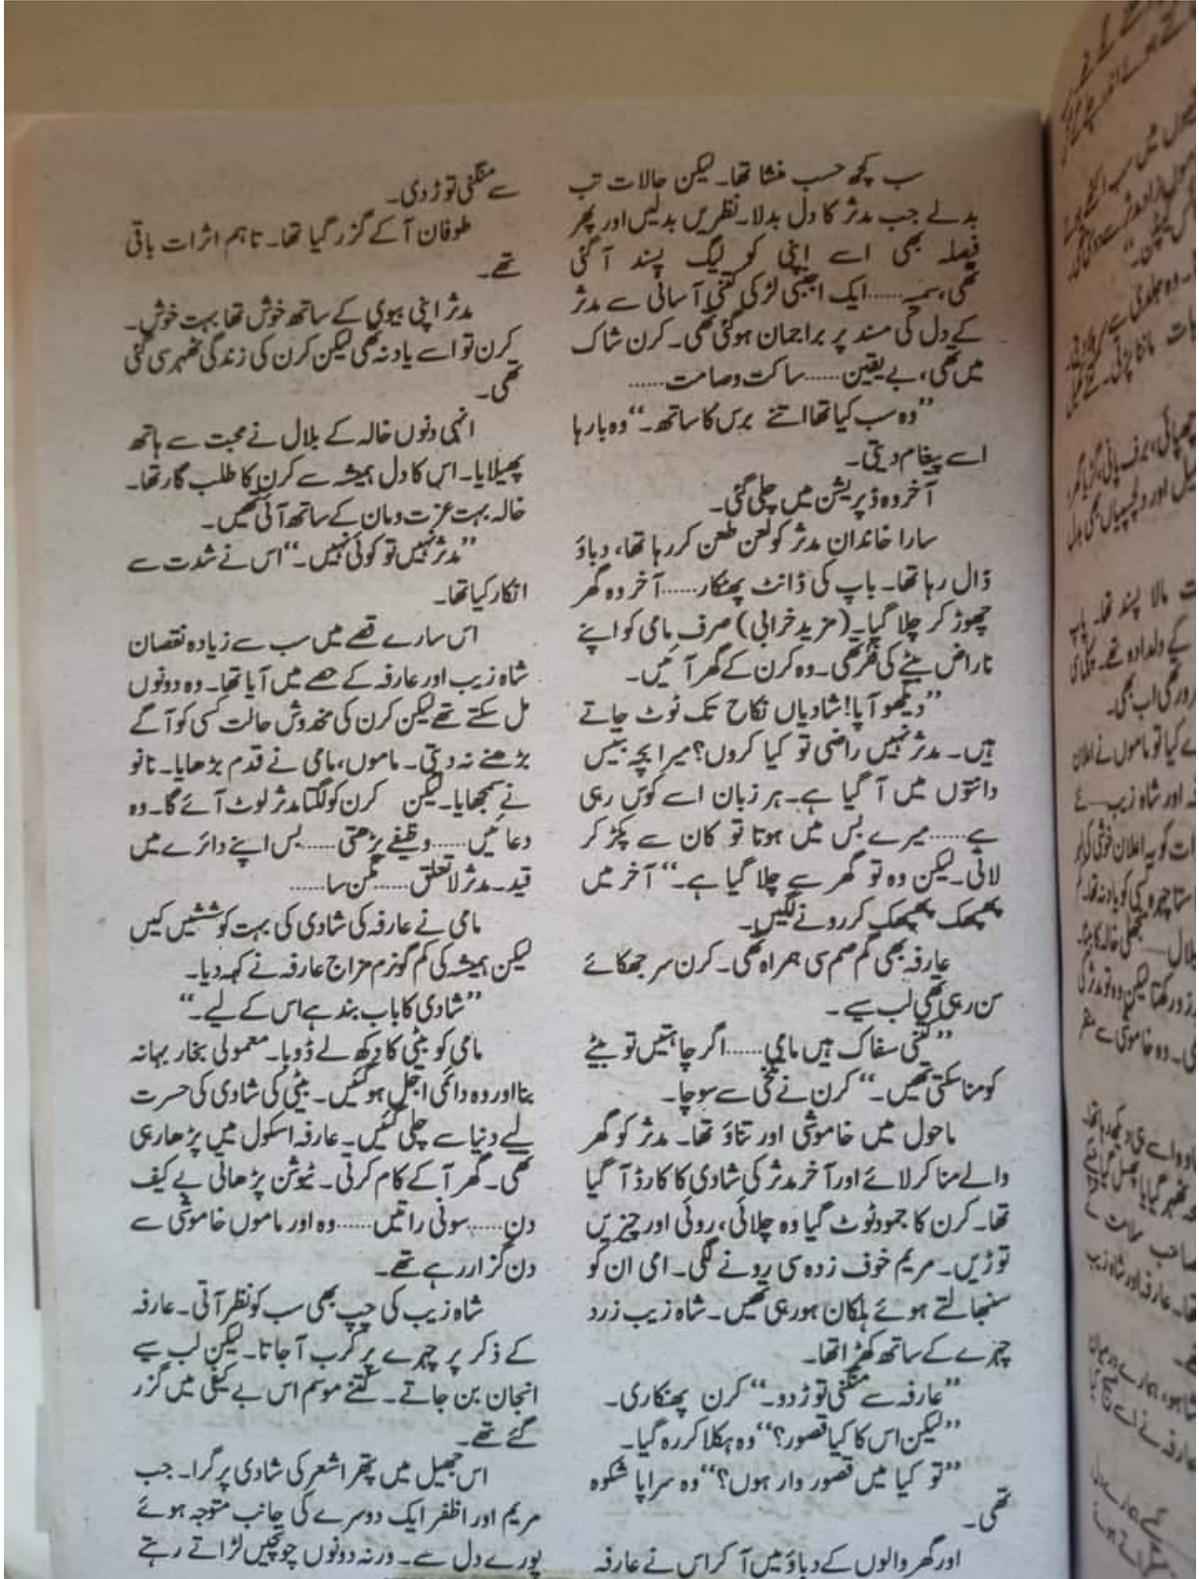 سب کچھ حسب منشا تھا۔ لیکن حالات تب
بدلے جب مدثر کا دل بدلا۔ نظریں بدلیں اور پھر
فیصلہ بھی اسے اپنی کولیگ پسند آ گئی
تھی، سمیہ...... ایک اجنبی لڑکی کتنی آسانی سے مدثر
کے دل کی مسند پر براجمان ہو گئی تھی۔ کرن شاک
میں تھی، بے یقین...... ساکت و صامت......
”وہ سب کیا تھا اتنے برس کا ساتھ۔“ وہ بارہا
اسے پیغام دیتی۔
آخر وہ ڈپریشن میں چلی گئی۔
سارا خاندان مدثر کو لعن طعن کر رہا تھا، دباؤ
ڈال رہا تھا۔ باپ کی ڈانٹ پھٹکار...... آخر وہ گھر
چھوڑ کر چلا گیا۔ (مزید خرابی) صرف مامی کو اپنے
ناراض بیٹے کی فکر تھی۔ وہ کرن کے گھر آئیں۔
”دیکھو آپا! شادیاں نکاح تک ٹوٹ جاتے
ہیں۔ مدثر نہیں راضی تو کیا کروں؟ میرا بچہ بتیس
دانتوں میں آ گیا ہے۔ ہر زبان اسے کوس رہی
ہے...... میرے بس میں ہوتا تو کان سے پکڑ کر
لاتی۔ لیکن وہ تو گھر سے چلا گیا ہے۔“ آخر میں
پھپھک پھپھک کر رونے لگیں۔
عارفہ بھی گم صم سی ہمراہ تھی۔ کرن سر جھکائے
سن رہی تھی لب سیے۔
”کتنی سفاک ہیں مامی...... اگر چاہتیں تو بیٹے
کو منا سکتی تھیں۔“ کرن نے تلخی سے سوچا۔
ماحول میں خاموشی اور تناؤ تھا۔ مدثر کو گھر
والے منا کر لائے اور آخر مدثر کی شادی کا کارڈ آ گیا
تھا۔ کرن کا جمود ٹوٹ گیا وہ چلائی، روئی اور چیزیں
توڑیں۔ مریم خوف زدہ سی رونے لگی۔ امی ان کو
سنبھالتے ہوئے ہلکان ہو رہی تھیں۔ شاہ زیب زرد
چہرے کے ساتھ کھڑا تھا۔
”عارفہ سے منگنی توڑ دو۔“ کرن پھنکاری۔
”لیکن اس کا کیا قصور؟“ وہ ہکلا کر رہ گیا۔
”تو کیا میں قصور وار ہوں؟“ وہ سراپا شکوہ
تھی۔
اور گھر والوں کے دباؤ میں آ کر اس نے عارفہ
سے منگنی توڑ دی۔
طوفان آ کے گزر گیا تھا۔ تاہم اثرات باقی
تھے۔
مدثر اپنی بیوی کے ساتھ خوش تھا بہت خوش۔
کرن تو اسے یاد نہ تھی لیکن کرن کی زندگی ٹھہر سی گئی
تھی۔
انہی دنوں خالہ کے بلال نے محبت سے ہاتھ
پھیلایا۔ اس کا دل ہمیشہ سے کرن کا طلب گار تھا۔
خالہ بہت عزت و مان کے ساتھ آئی تھیں۔
”مدثر نہیں تو کوئی نہیں۔“ اس نے شدت سے
انکار کیا تھا۔
اس سارے قصے میں سب سے زیادہ نقصان
شاہ زیب اور عارفہ کے حصے میں آیا تھا۔ وہ دونوں
مل سکتے تھے لیکن کرن کی مخدوش حالت کسی کو آگے
بڑھنے نہ دیتی۔ ماموں، مامی نے قدم بڑھایا۔ نانو
نے سمجھایا۔ لیکن کرن کو لگتا مدثر لوٹ آئے گا۔ وہ
دعائیں...... وظیفے پڑھتی...... بس اپنے دائرے میں
قید۔ مدثر لاتعلق...... مگن سا......
مامی نے عارفہ کی شادی کی بہت کوششیں کیں
لیکن ہمیشہ کی کم گو نرم مزاج عارفہ نے کہہ دیا۔
”شادی کا باب بند ہے اس کے لیے۔“
مامی کو بیٹی کا دکھ لے ڈوبا۔ معمولی بخار بہانہ
بنا اور وہ داعی اجل ہو گئیں۔ بیٹی کی شادی کی حسرت
لیے دنیا سے چلی گئیں۔ عارفہ اسکول میں پڑھا رہی
تھی۔ گھر آ کے کام کرتی۔ ٹیوشن پڑھاتی بے کیف
دن...... سونی راتیں...... وہ اور ماموں خاموشی سے
دن گزار رہے تھے۔
شاہ زیب کی چپ بھی سب کو نظر آتی۔ عارفہ
کے ذکر پر چہرے پر کرب آ جاتا۔ لیکن لب سیے
انجان بن جاتے۔ کتنے موسم اس بے کیفی میں گزر
گئے تھے۔
اس جھیل میں پتھر اشعر کی شادی پر گرا۔ جب
مریم اور اظفر ایک دوسرے کی جانب متوجہ ہوئے
پورے دل سے۔ ورنہ دونوں چونچیں لڑاتے رہتے